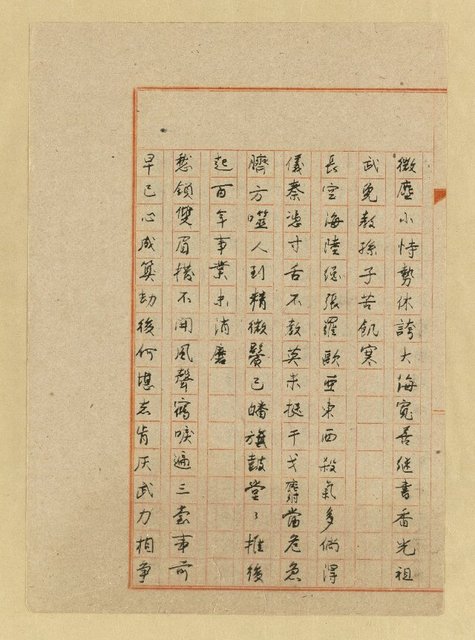 微塵小恃勢休誇大海寬善繼書香光祖
武免教孫子苦飢寒
長空海陸總張羅歐亞東西殺氣多倘得
儀秦寸舌不教挺干戈當危急
臍方噬人到精微鬢已皤旗鼓堂々推後
起百年事業未消磨
愁鎖雙眉撥不開風聲鶴唳遍三臺事前
早已心成算劫後何堪志肯灰武力相爭